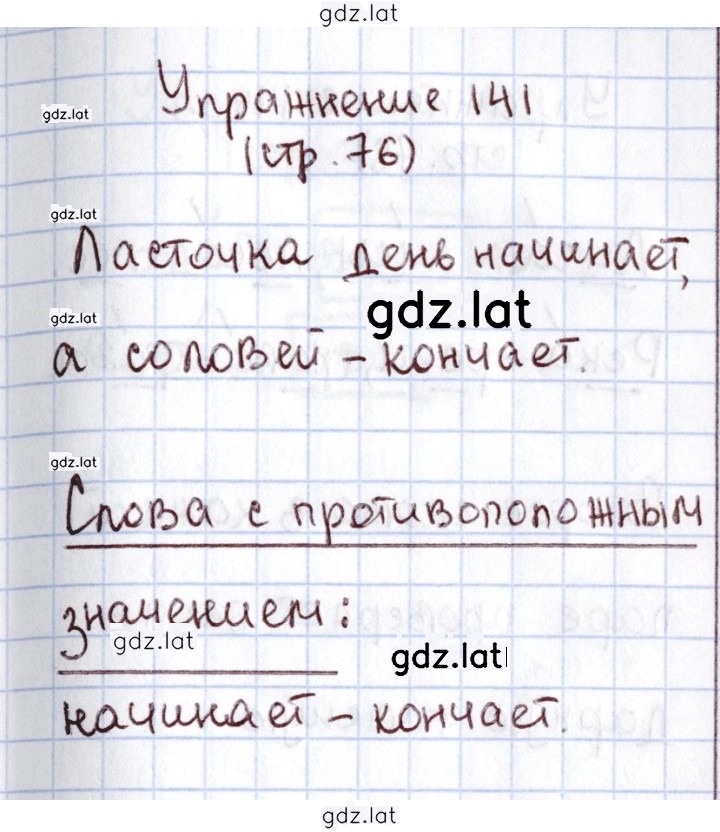 gdz.lat
Упражнение 141
gdz.lat
(стр. 76)
gdz.lat
Ласточка день начинает,
gdz.lat
gdz.lat
а соловей – кончает.
gdz.lat
Слова с противоположным
значением:
gdz.lat
gdz.lat
начинает – кончает.
gdz.lat